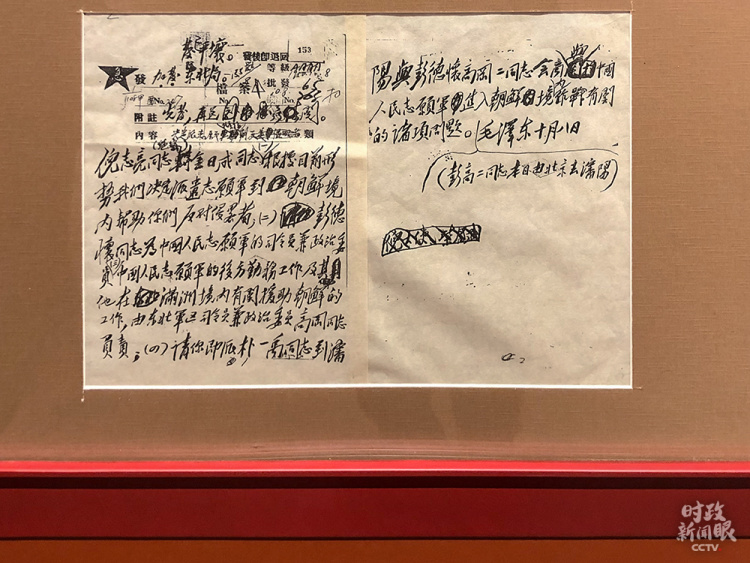 發平壤。
153
發
加急
東北局
檔案
批發
附註
內容
類
倪志亮同志轉金日成同志(一)根據目前形
勢我們決定派遣志願軍到朝鮮境
內幫助你們反對侵畧者;(二)彭德
懷同志為中國人民志願軍的司令員兼政治委
員(三)中國人民志願軍的後方勤務工作及其
他在滿洲境內有関援助朝鮮的
工作,由東北軍區司令員兼政治委員高崗同志
員責;(四)請你即派朴一禹同志到瀋
陽與彭德懷高崗二同志会商與中國
人民志願軍進入朝鮮境作戰有関
的諸項問題。毛澤东十月八日
(彭高二同志本日由北京去瀋陽)
时政
新闻眼
CCTV